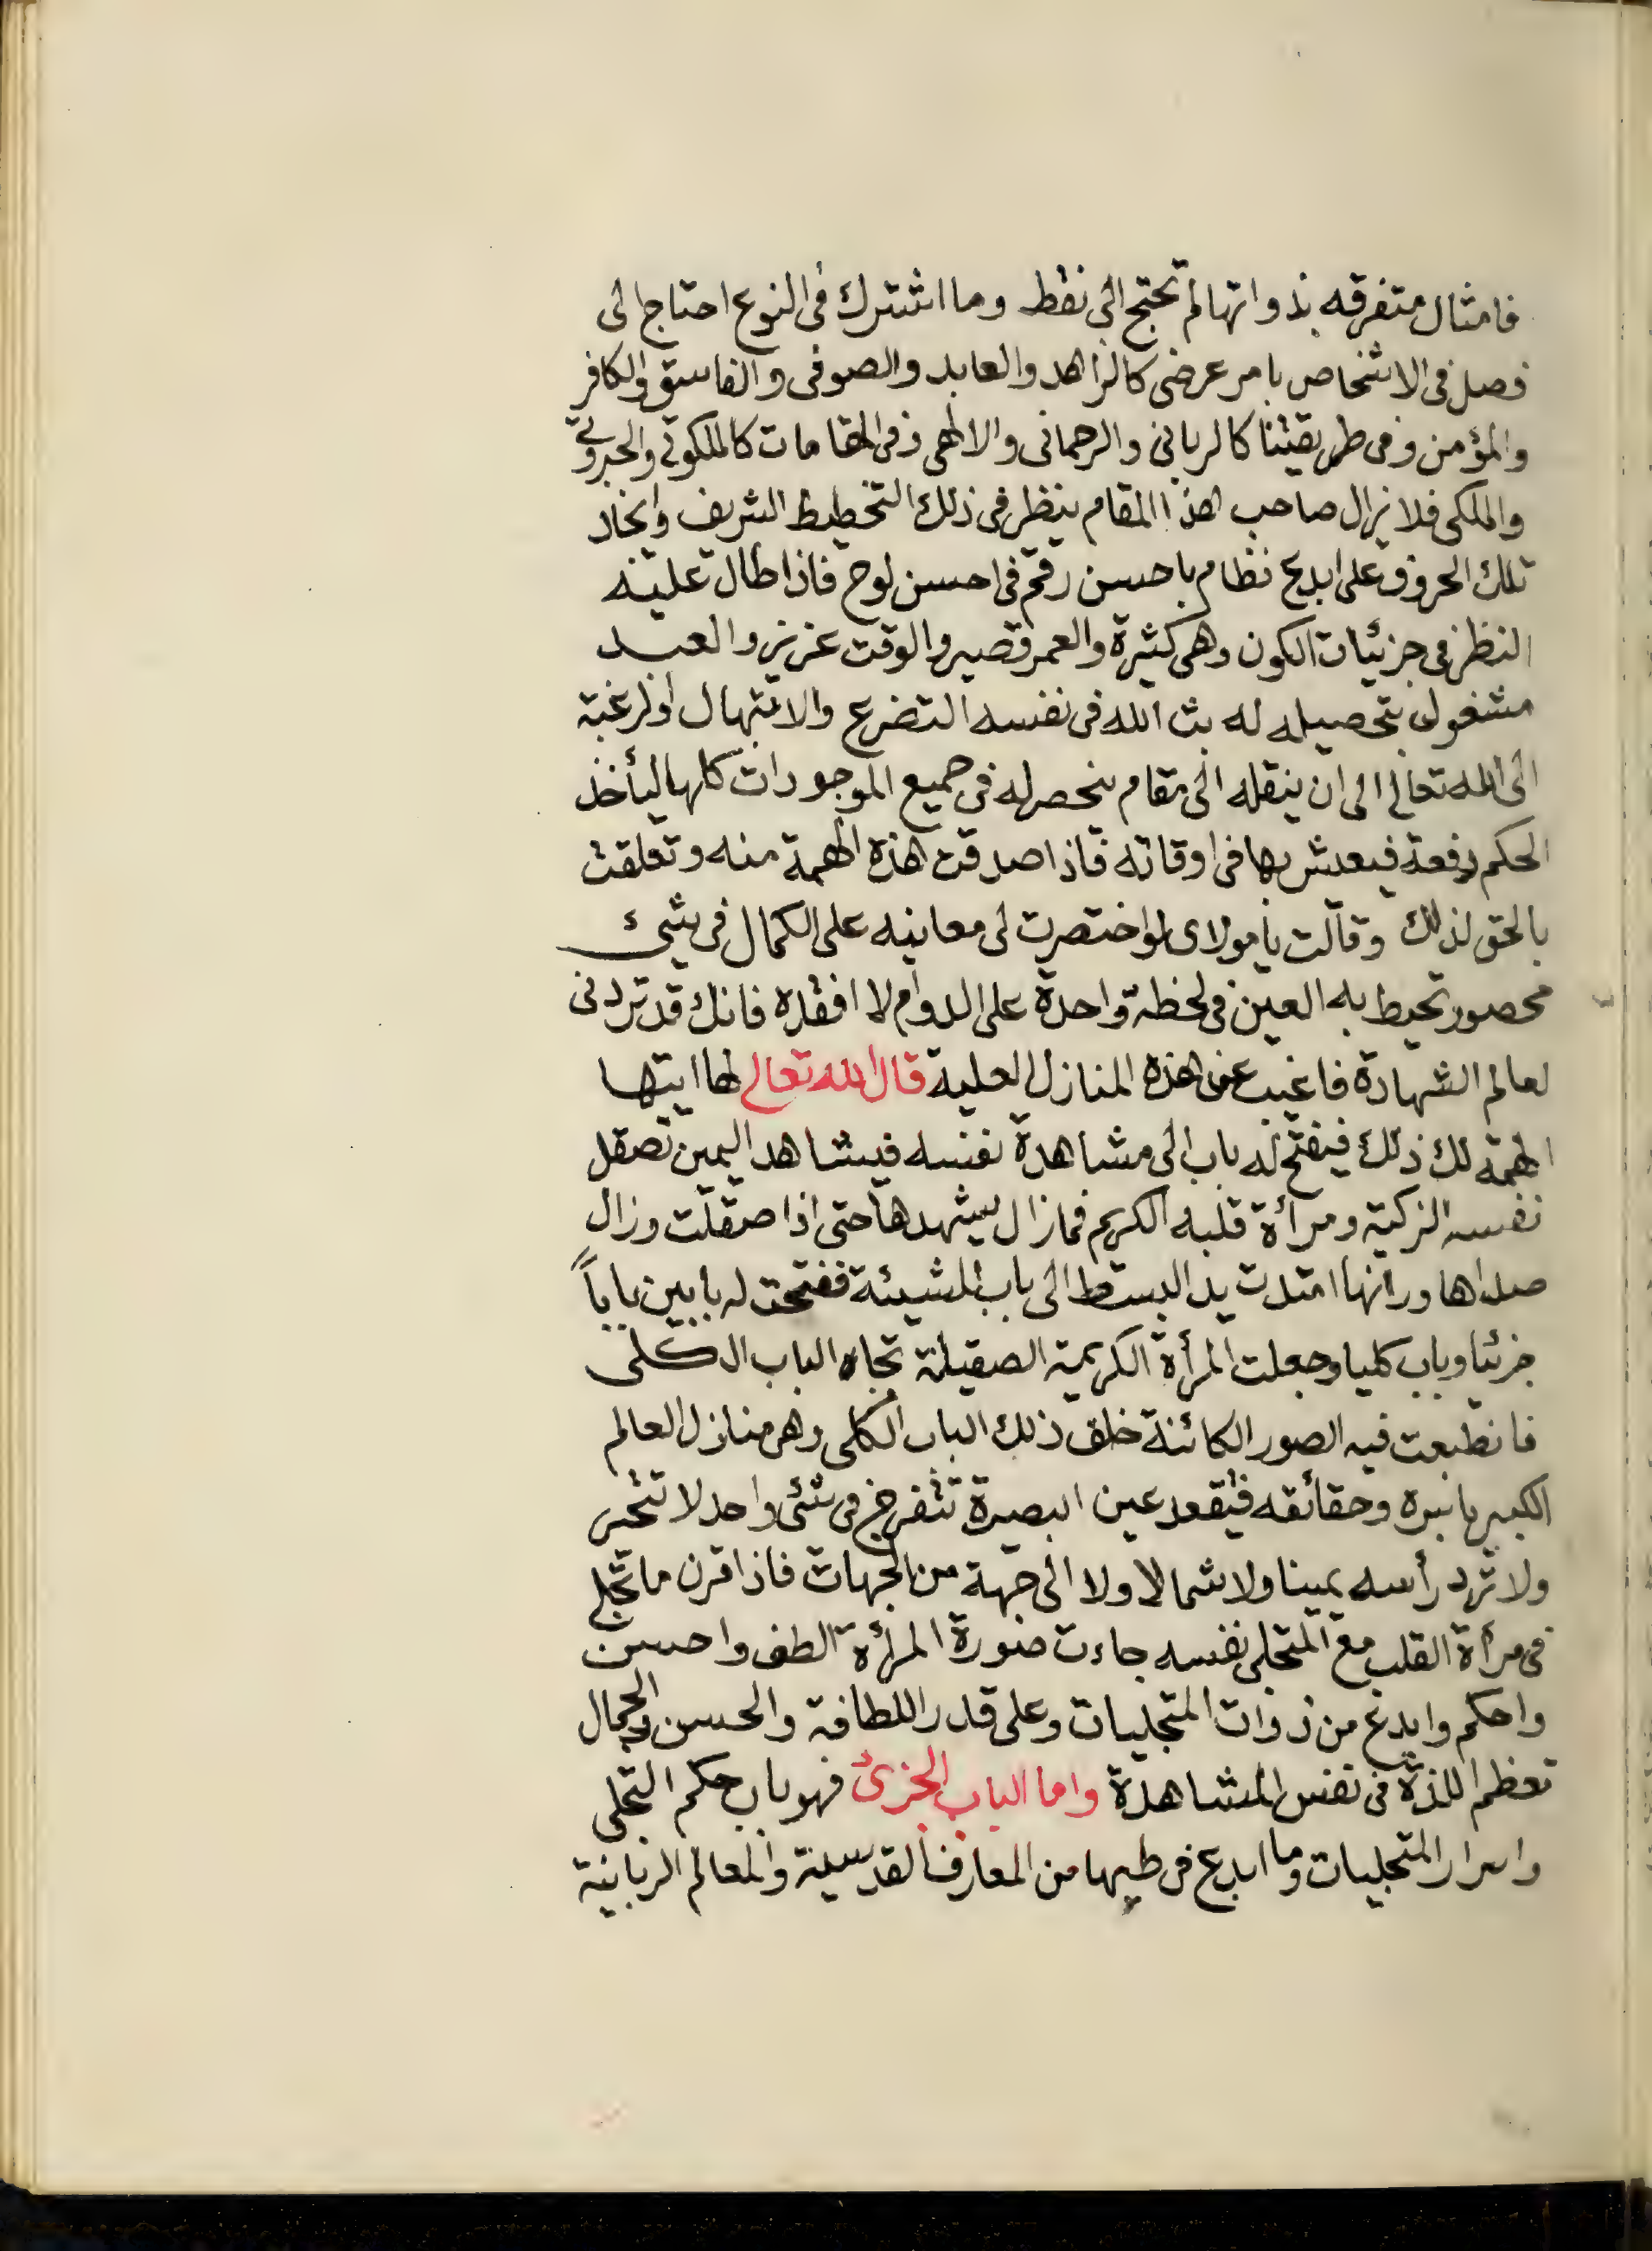 فامثال متفرقه بذواتها لم تحتج الى نقط وما اشترك فى النوع احتاج الى
فصل فى الاشخاص بامر عرضى كالزاهد والعابد والصوفى والفاسق والكافر
والمؤمن وفى طريقتنا كالربانى والرحمانى والالهى وفى المقامات كالملكوتى والجبروتى
والملكى فلا يزال صاحب هذا المقام ينظر فى ذلك التخطيط الشريف واتخاد
تلك الحروف على ابدع نظام باحسن رقم فى احسن لوح فاذا طال عليه
النظر فى جزئيات الكون وهى كثيرة والعمر قصير والوقت عزيز والعبد
مشغول بتحصيله له بث الله فى نفسه التضرع والابتهال والرغبة
الى الله تعالى الى ان ينقله الى مقام ينحصر له فى جميع الموجودات كلها ليأخذ
الحكم دفعة فيعيش بها فى اوقاته فاذا صدقت هذه الهمة منه وتعلقت
بالحق لذلك وقالت يامولاى لواختصرت لى معانيه على الكمال فى شيئ
محصور تحيط به العين فى لحظة واحدة على الدوام لا افقده فانك قد تردنى
لعالم الشهادة فاغيب عن هذه المنازل العلية قال الله تعالى لها ايتها
الهمة لك ذلك فيفتح له باب الى مشاهدة نفسه فيشاهد اليمين تصقل
نفسه الزكية ومرأة قلبه الكريم فما زال يشهدها حتى اذا صقلت وزال
صداها ورانها امتدت يد البسط الى باب المشيئة ففتحت له بابين باباً
جزئيا وباب كليا وجعلت المرأة الكريمة الصقيلة تجاه الباب الكلى
فانطبعت فيه الصور الكائنة خلف ذلك الباب الكلى وهى منازل العالم
الكبير باسره وحقائقه فيقعد عين البصيرة تتفرج فى شئى واحد لا تتحير
ولا ترد رأسه يمينا ولا شمالا ولا الى جهة من الجهات فاذا قرن ما تجلى
فى مرأة القلب مع المتجلى نفسه جاءت صورة المرأة الطف واحسن
واحكم وابدع من ذوات المتجليات وعلى قدر اللطافة والحسن والجمال
تعظم اللذة فى نفس المشاهدة واما الباب الجزئ فهو باب حكم التجلى
واسرار المتجليات وما ابدع فى طيها من المعارف القدسية والمعالم الربانية